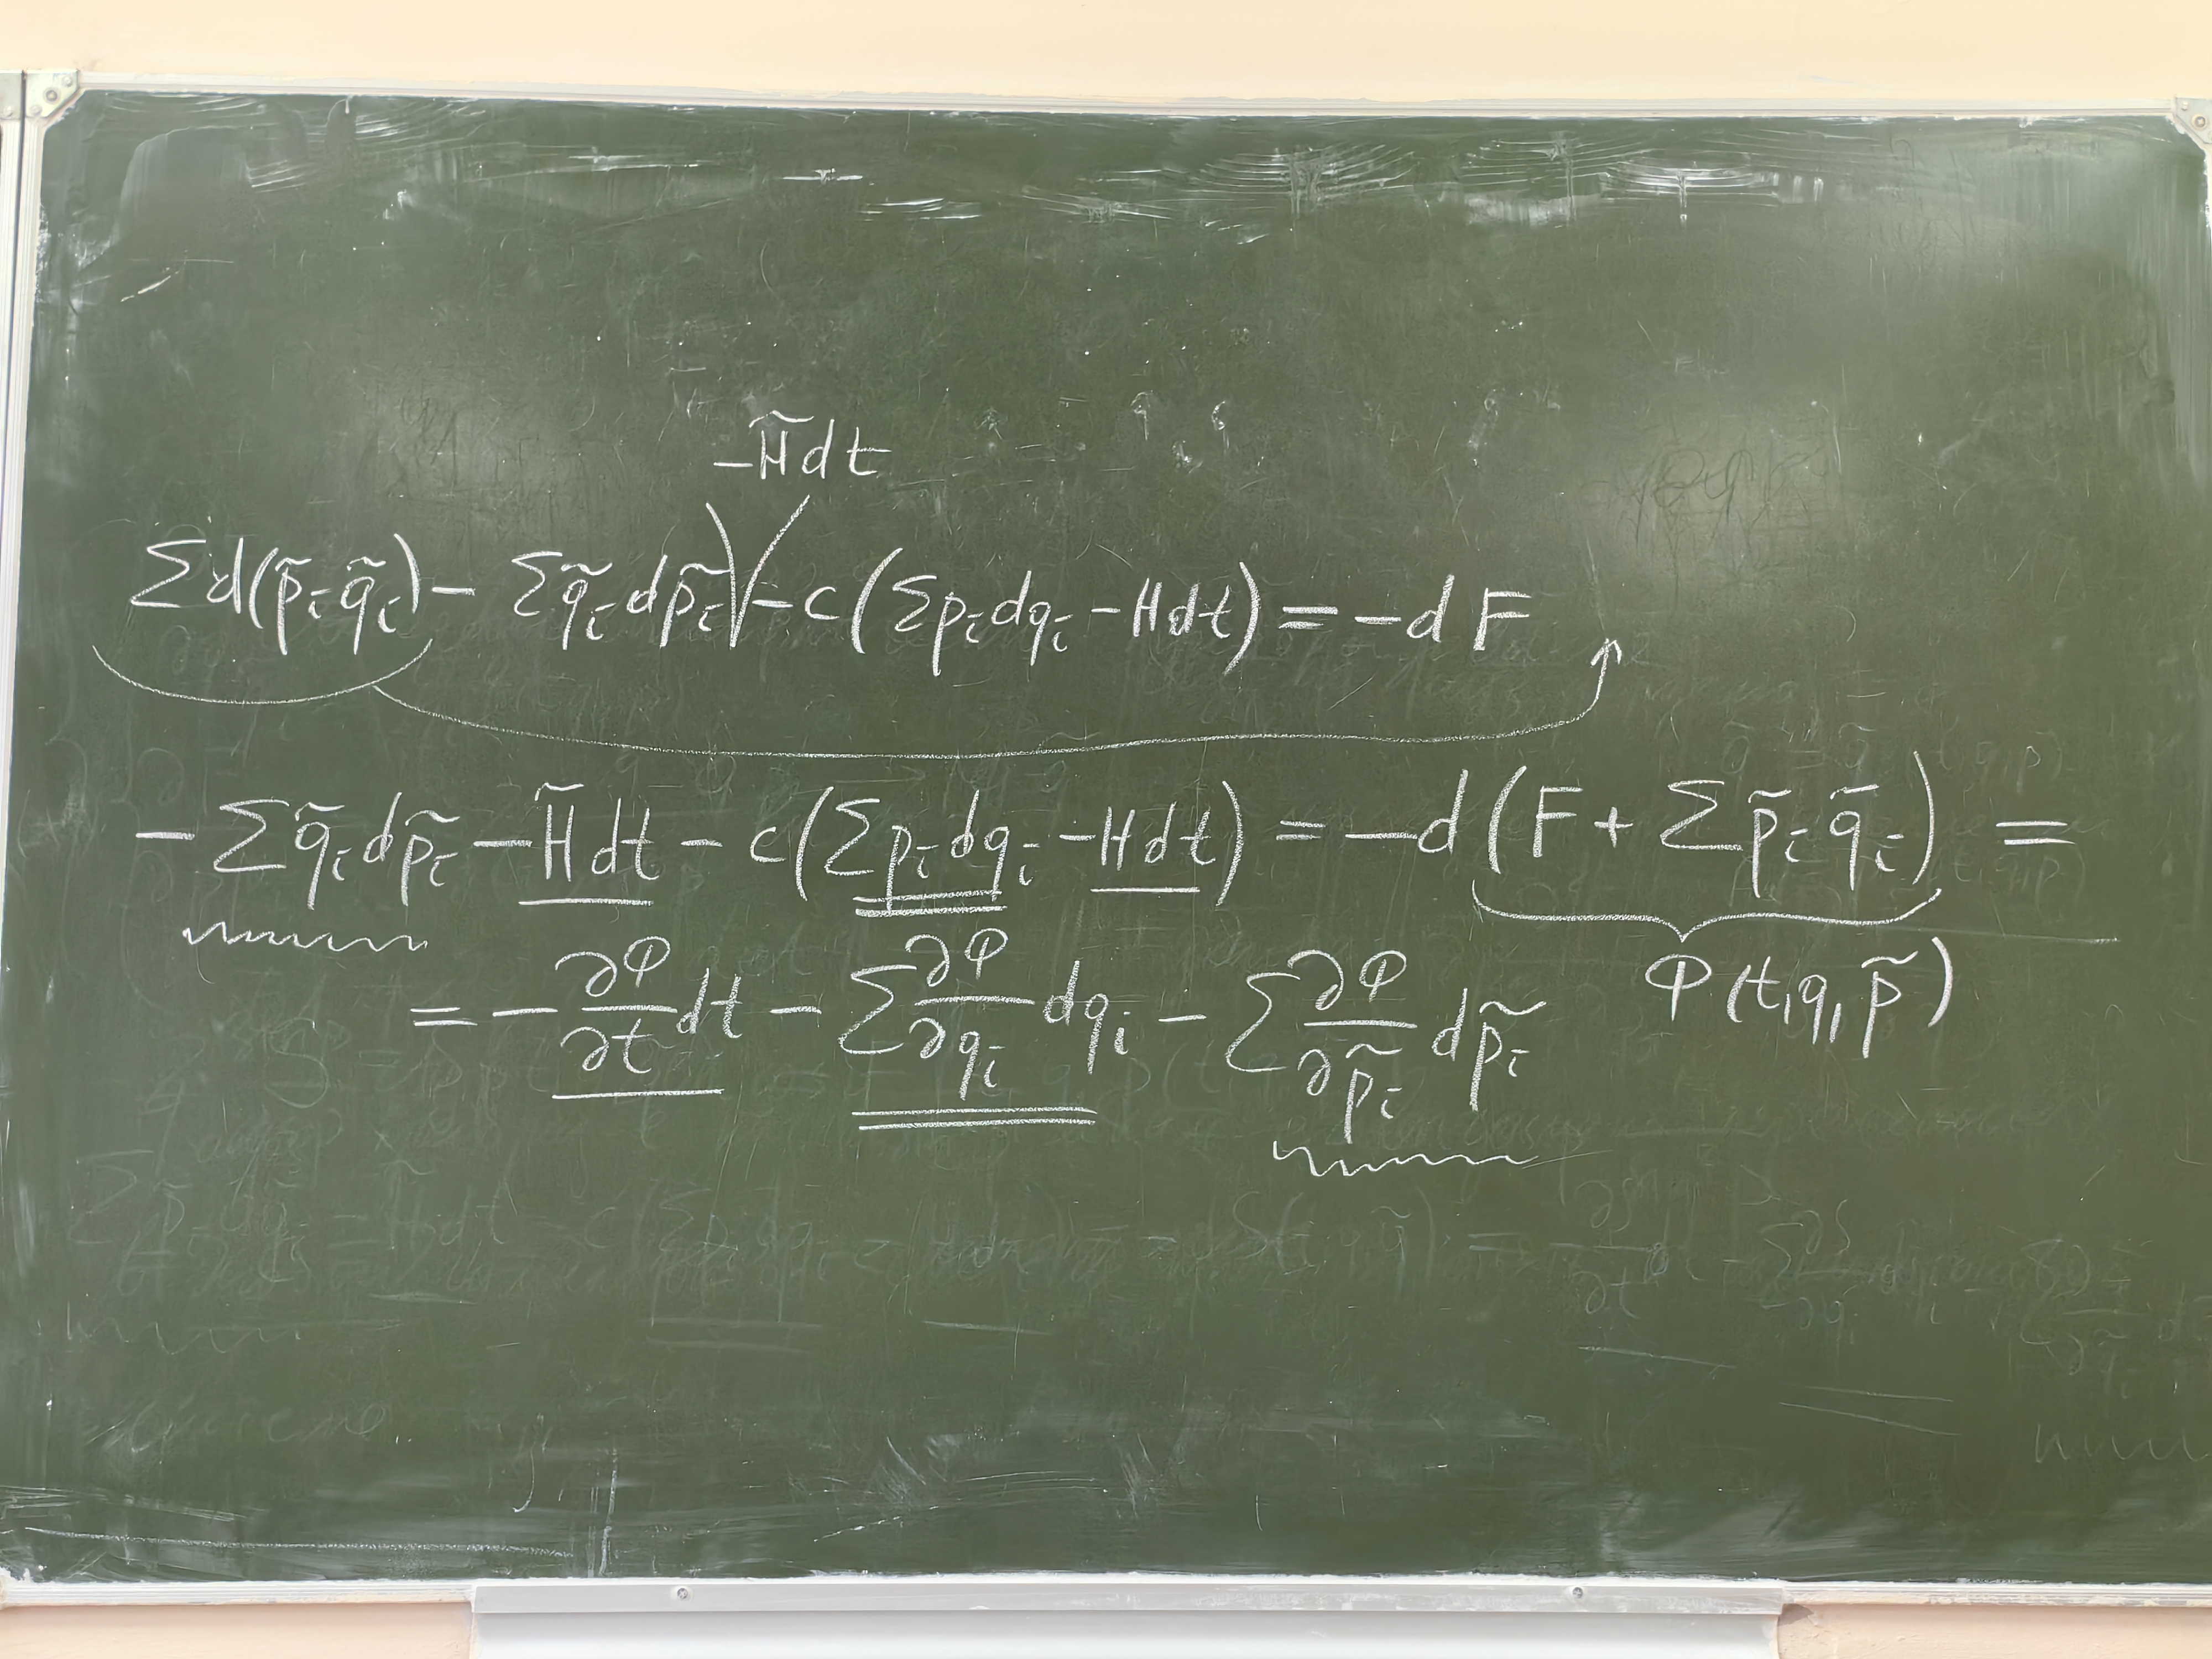 -H̃dt
Σd(p̃ᵢq̃ᵢ) - Σq̃ᵢdp̃ᵢ - c(Σpᵢdqᵢ - Hdt) = -dF
-Σq̃ᵢdp̃ᵢ - H̃dt - c(Σpᵢdqᵢ - Hdt) = -d(F + Σp̃ᵢq̃ᵢ) =
Φ(t,q,p̃)
= -∂Φ/∂t dt - Σ∂Φ/∂qᵢ dqᵢ - Σ∂Φ/∂p̃ᵢ dp̃ᵢ